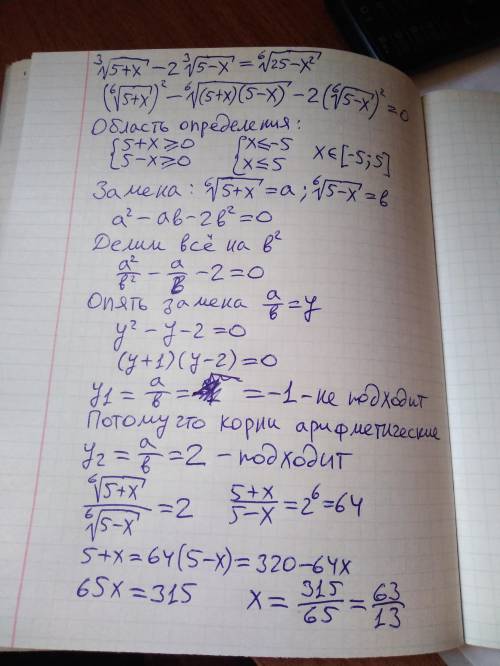 ∛(5+x) − 2 ∛(5−x) = ⁶√(25−x²)
(⁶√(5+x))² − ⁶√((5+x)(5−x)) − 2(⁶√(5−x))² = 0
Область определения:
{5+x ≥ 0 {x ≤ −5 x ∈ [−5; 5]
{5−x ≥ 0 {x ≤ 5
Замена: ⁶√(5+x) = a; ⁶√(5−x) = в
a² − aв − 2в² = 0
Делим всё на в²
a²/в² − a/в − 2 = 0
Опять замена a/в = y
y² − y − 2 = 0
(y+1)(y−2) = 0
y1 = a/в = = −1 - не подходит
Потому что корни арифметические
y2 = a/в = 2 - подходит
⁶√(5+x)/⁶√(5−x) = 2 (5+x)/(5−x) = 2⁶ = 64
5+x = 64(5−x) = 320−64x
65x = 315 x = 315/65 = 63/13